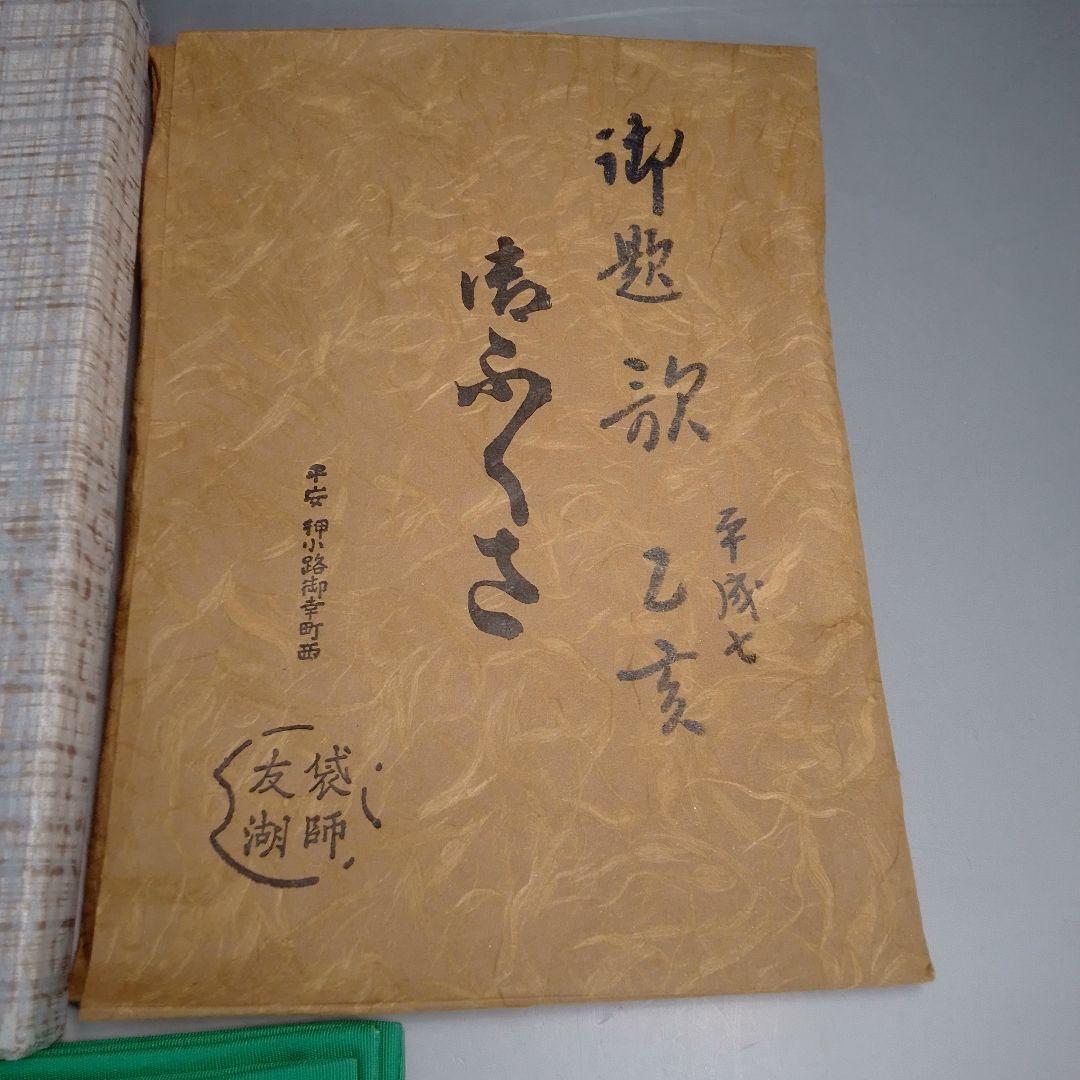 平成七
御題 歌 乙亥
御ふくさ
平安 押小路御幸町西
袋師
友湖